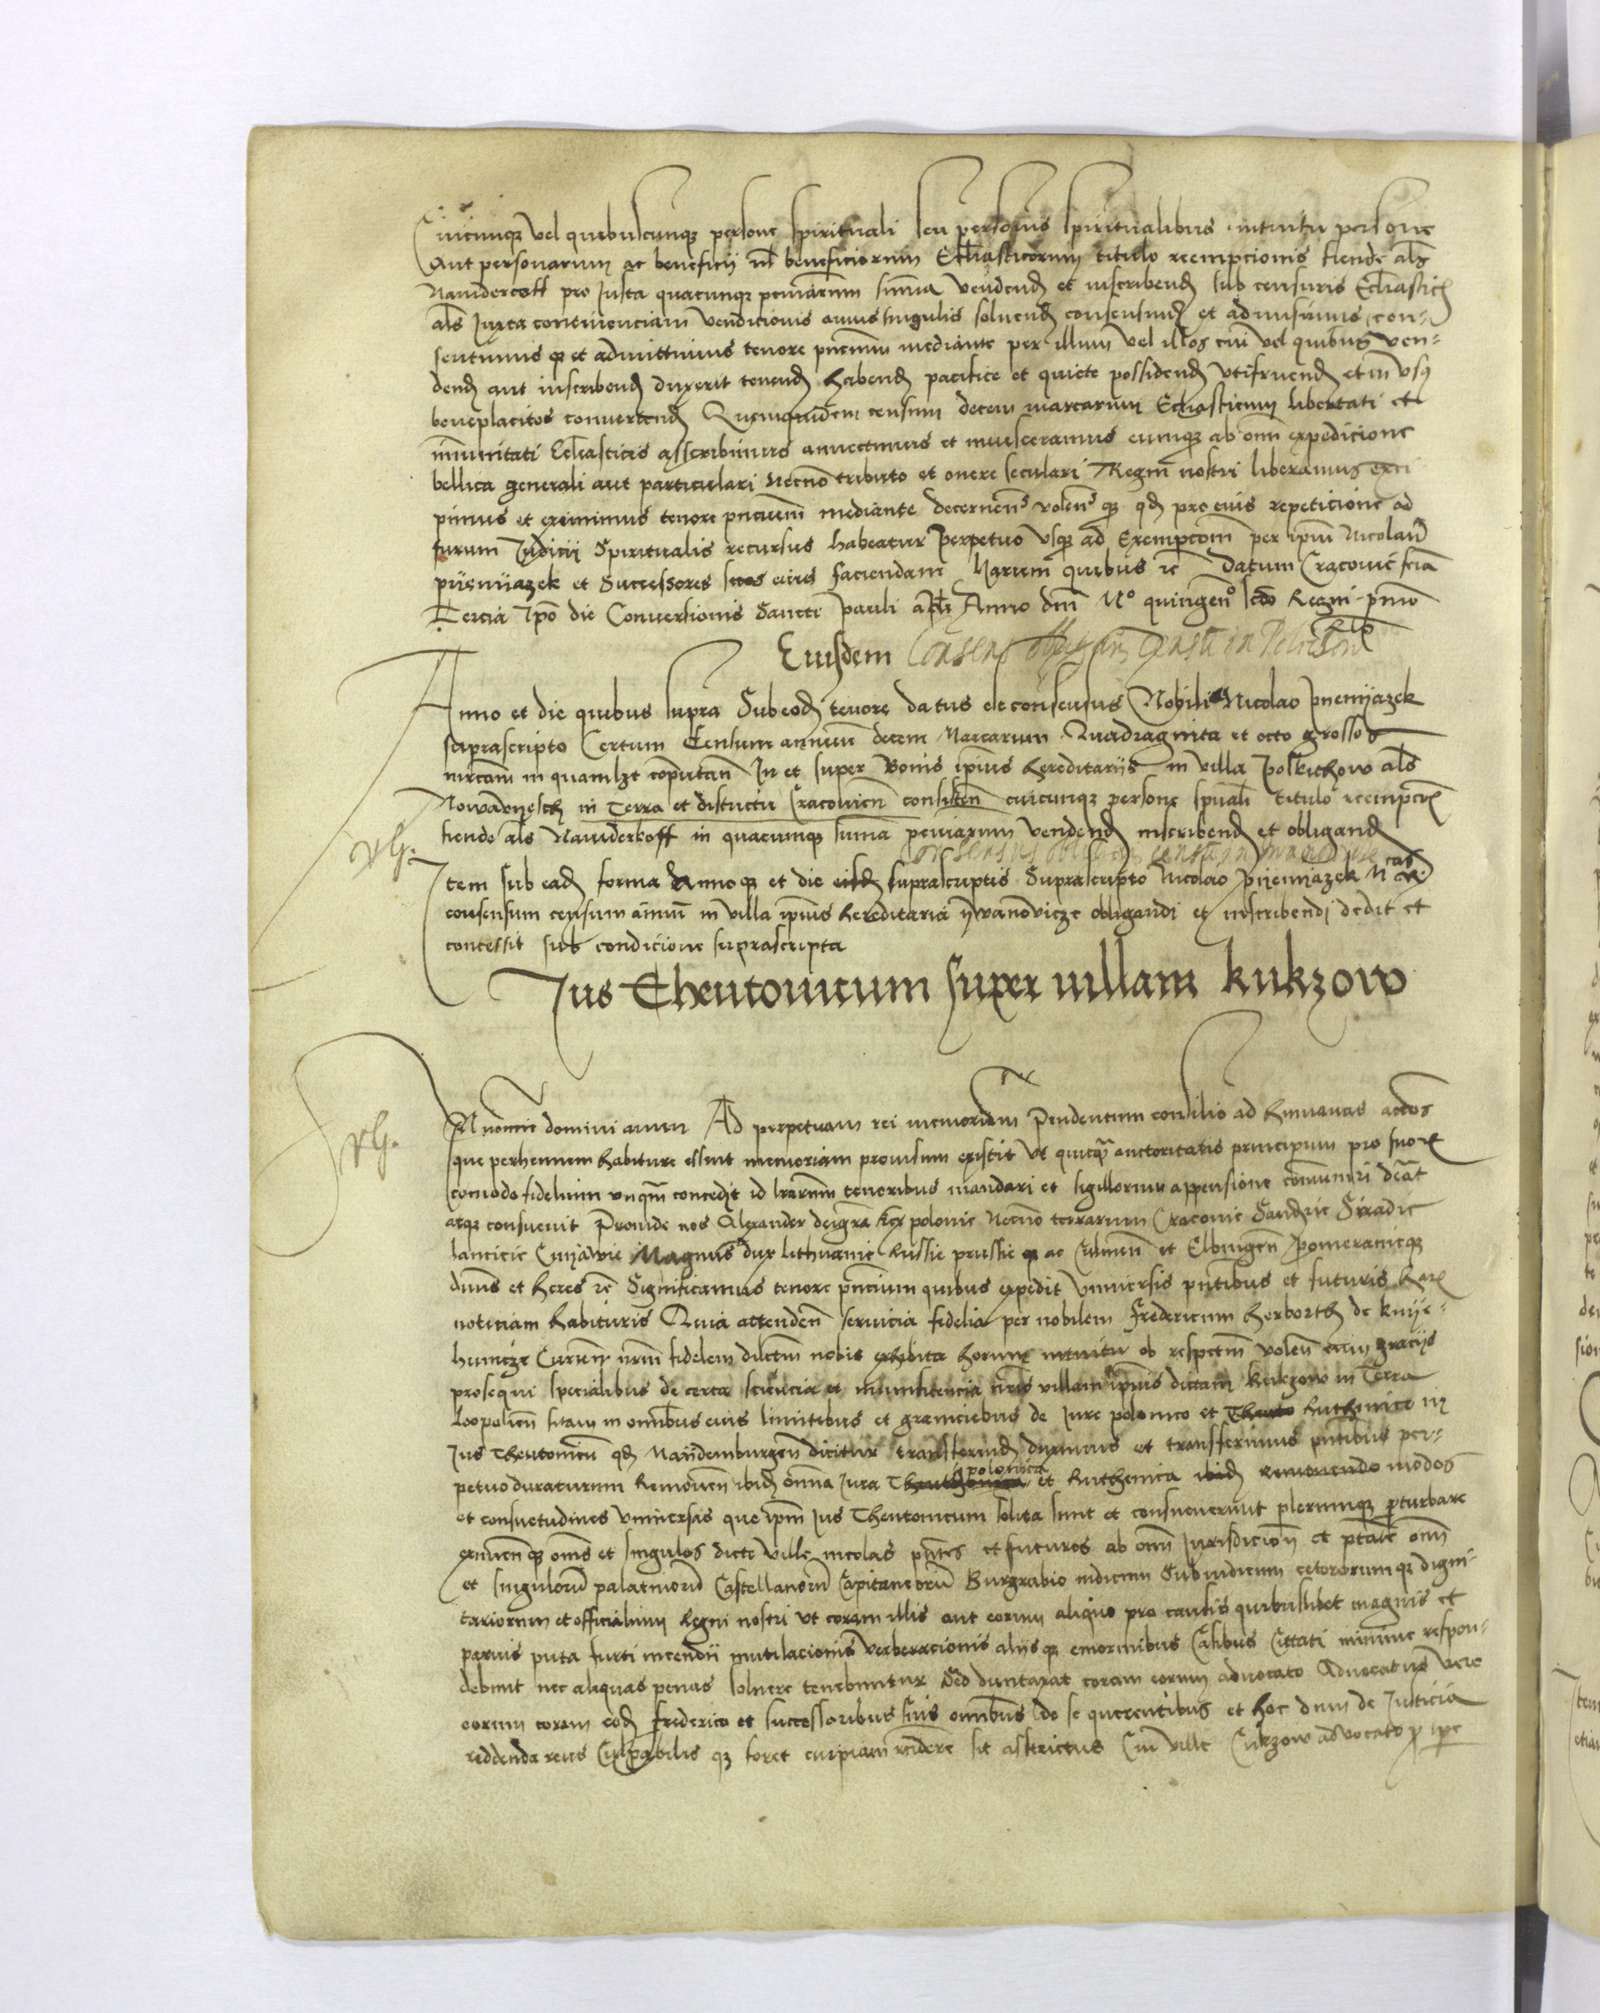 Cuicunqz vel quibuscunqz persone spirituali seu personis spiritualibus intuitu persone
Aut personarum ac beneficii vl beneficiorum Ecclīasticorum titulo reempcionis tiende als
Namderkoff pro Justa quacunqz peniarum summa vendend et inscribend sub censuris Ecclīastic
als Juxta continenciam vendicionis annis singulis solvend consensim et admisimus con-
sentimus qz et admittimus tenore pntium mediante per illum vel illos cui vel quibus ven-
dend aut inscribend duxerit tenend habend pacifice et quiete possidend utifruend et in usus
beneplacitos convertend Quemquidem censum decem marcarum Ecclīasticum libertati et
imunitati Ecclīasticis asscribimus annectimus et invisceramus eumqz ab omi expedicione
bellica generali aut particulari Necno tributo et onere seculari Regni nostri liberamus exci
pimus et eximimus tenore pntium mediante decernens volens qz qd pro eius repeticione ad
forum Judicii Spiritualis recursus habeatur perpetuo Usqz ad Exempcom per ipm Nicolau
pijenijazek et Successores suos eius faciendam Harum quibus rc Datum Cracovie feria
Tercia Ipo die Conversionis Sancti Pauli apli Anno dni Mo quingeno scdo Regni primo
Eiusdem Consens
Anno et die quibus supra Sub eod tenore datus est consensus Nobili Nicolao pnenijazek
suprascripto Certum Censum annuum decem Marcarum Quadraginta et octo grossos
mrcam in quamlzt coputan In et super Bonis ipius hereditariis in villa poskichow als
Nowadvyesch in Terra et districtu Cracovien consisten cuicunqz persone spuali titulo reempcois
tiende als Namderkoff in quacunqz suma peniarum vendend inscribend et obligand
Consensus
Item sub ead forma Annoqz et die eisd suprascriptis Suprascripto Nicolao pijenijazek
consensum censum annuu in villa ipius hereditaria ywanovicze obligandi et inscribendi dedit et
concessit sub condicione suprascripta
Jus Theutonicum super villam Kukzow
In nomine domini amen Ad perpetuam rei memoriam Prudentum consilio ad humanas actos
que perhennem habiture essent memoriam provisum existit Ut quicqd auctoritatis principum pro suorum
comodo fidelium unqm concedit id lrarum tenoribus mandari et sigillorum appensione comuniri deat
atqz consuevit Proinde nos Alexander dei gra Rex polonie Necno terrarum Cracovie Sandomirie Siradie
lancicie Cuyavie Magnus dux Lithuanie Russie prussie qz ac Culmen et Elbingen Pomeranieqz
dnus et heres rc Significamus tenore pntium quibus expedit Universis pntibus et futuris haru
noticiam habituris Quia attenden servicia fidelia per nobilem Fredericum Herborth de knije-
hunicze Curien nrm fidelem dilctm nobis exhibita horum intuitu ob respctm volen eum graciis
prosequi specialibus de certa sciencia et munificencia nris villam ipius dictam Kukzow in Terra
Leopolien sitam in omibus suis limitibus et graniciebus de Jure polonico et Theuto Ruthenico in
Jus Theutonicu qd Maydemburgen dicitur transferend duximus et transferimus pntibus per-
petuo duraturum Removen ibid omia Jura Theuthonica polonica et Ruthenica ibid removendo modos
et consuetudines Universas que ipm Jus Theutonicum solita sunt et consueverunt plerumqz pturbare
eximen qz oms et singulos dicte ville incolas pntes et futuros ab omi Jurisdicion et ptate omi
et singuloru palatinoru Castellanoru Capitaneoru Burgrabio iudicum Subiudicum ceterorumqz digni-
tariorum et officialium Regni nostri ut coram illis aut eorum aliquo pro causis quibuslibet magnis et
parvis puta furti incendii mutilacionis verberacionis aliisqz enormibus Casibus Citati minime respon-
debunt nec aliquas penas solvere tenebuntur Sed duntaxat coram eorum advocato Advocatus vero
eorum coram eod Frederico et successoribus suis omibus de se querentibus et hoc dum de Justicia
reddenda reus Culpabilis qz foret cuipiam rndere sit astrictus Cui ville Cukzow advocato